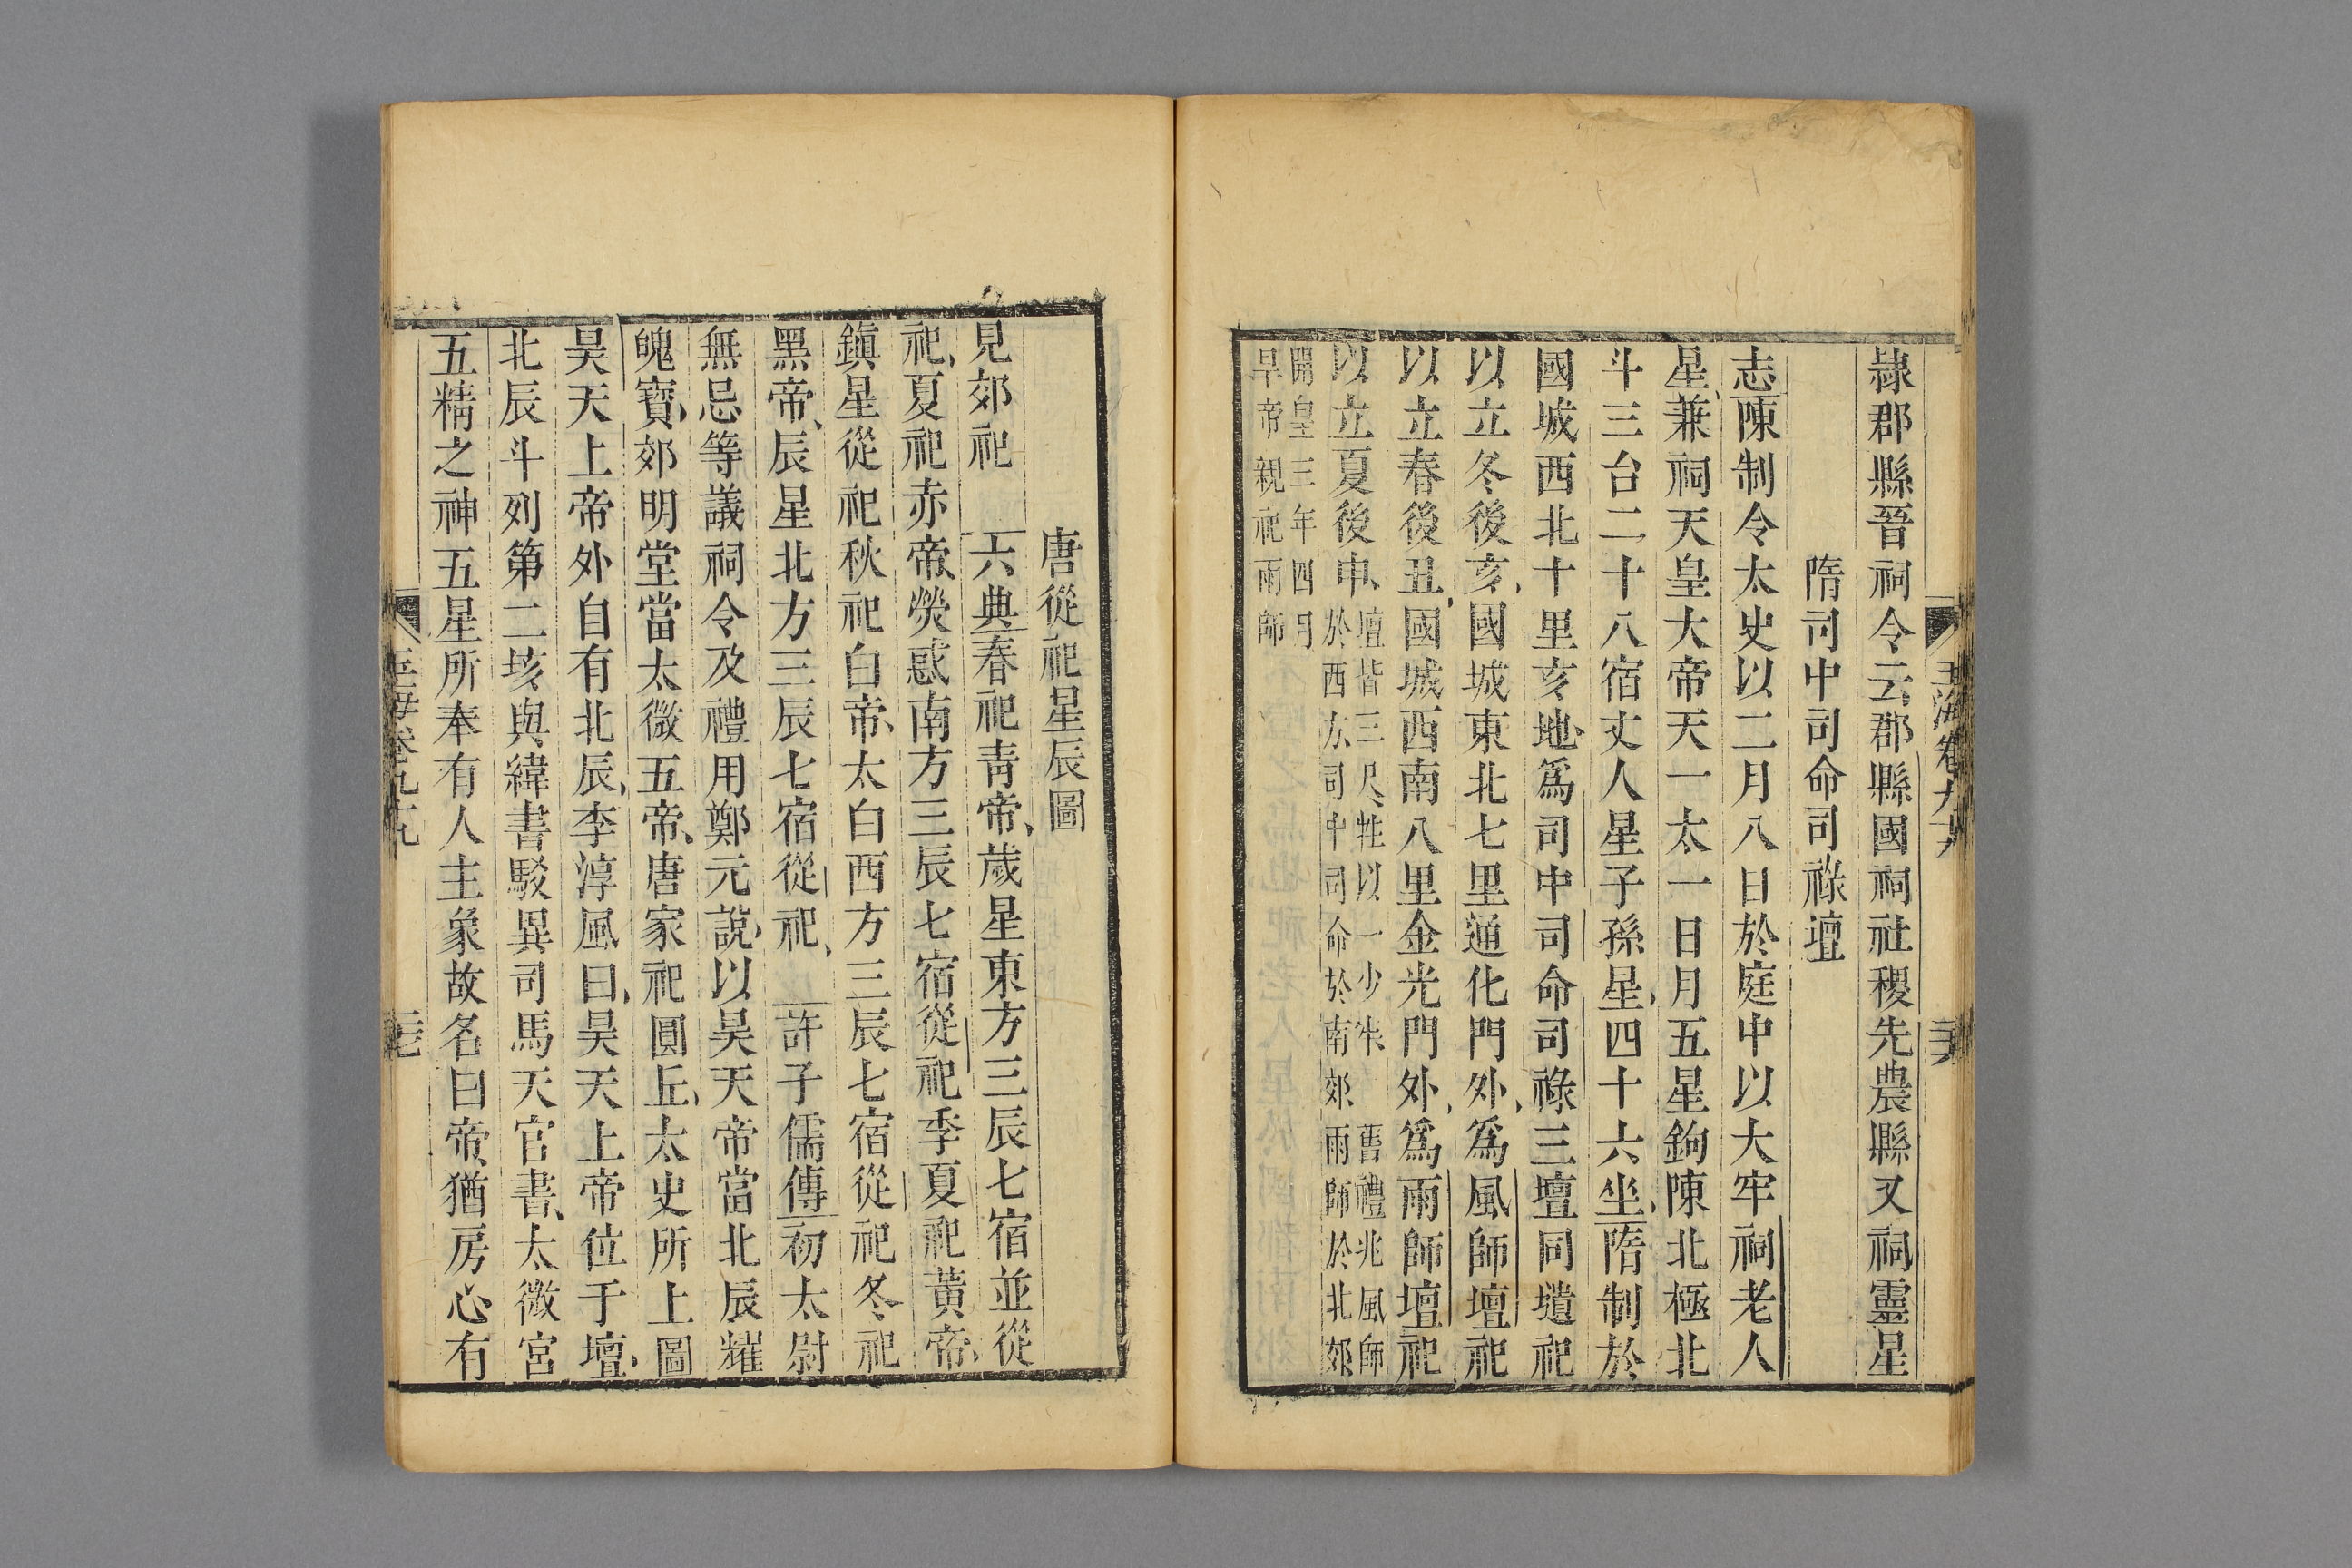 隷郡縣晉祠令云郡縣國祠社稷先農縣又祠靈星
隋司中司命司祿壇
志陳制令太史以二月八日於庭中以大牢祠老人
星兼祠天皇大帝天一太一日月五星鉤陳北極北
斗三台二十八宿丈人星子孫星四十六坐隋制於
國城西北十里亥地爲司中司命司祿三壇同壝祀
以立冬後亥國城東北七里通化門外爲風師壇祀
以立春後丑國城西南八里金光門外爲雨師壇祀
以立夏後申壇皆三尺牲以一少牢 舊禮兆風師
於西方司中司命於南郊雨師於北郊
開皇三年四月
旱帝親祀雨師
唐從祀星辰圖
見郊祀 六典春祀靑帝歲星東方三辰七宿並從
祀夏祀赤帝熒惑南方三辰七宿從祀季夏祀黃帝
鎭星從祀秋祀白帝太白西方三辰七宿從祀冬祀
黑帝辰星北方三辰七宿從祀 許子儒傳初太尉
無忌等議祠令及禮用鄭元說以昊天帝當北辰耀
魄寶郊明堂當太微五帝唐家祀圓丘太史所上圖
昊天上帝外自有北辰李淳風曰昊天上帝位于壇
北辰斗列第二垓與緯書駁異司馬天官書太微宮
五精之神五星所奉有人主象故名曰帝猶房心有